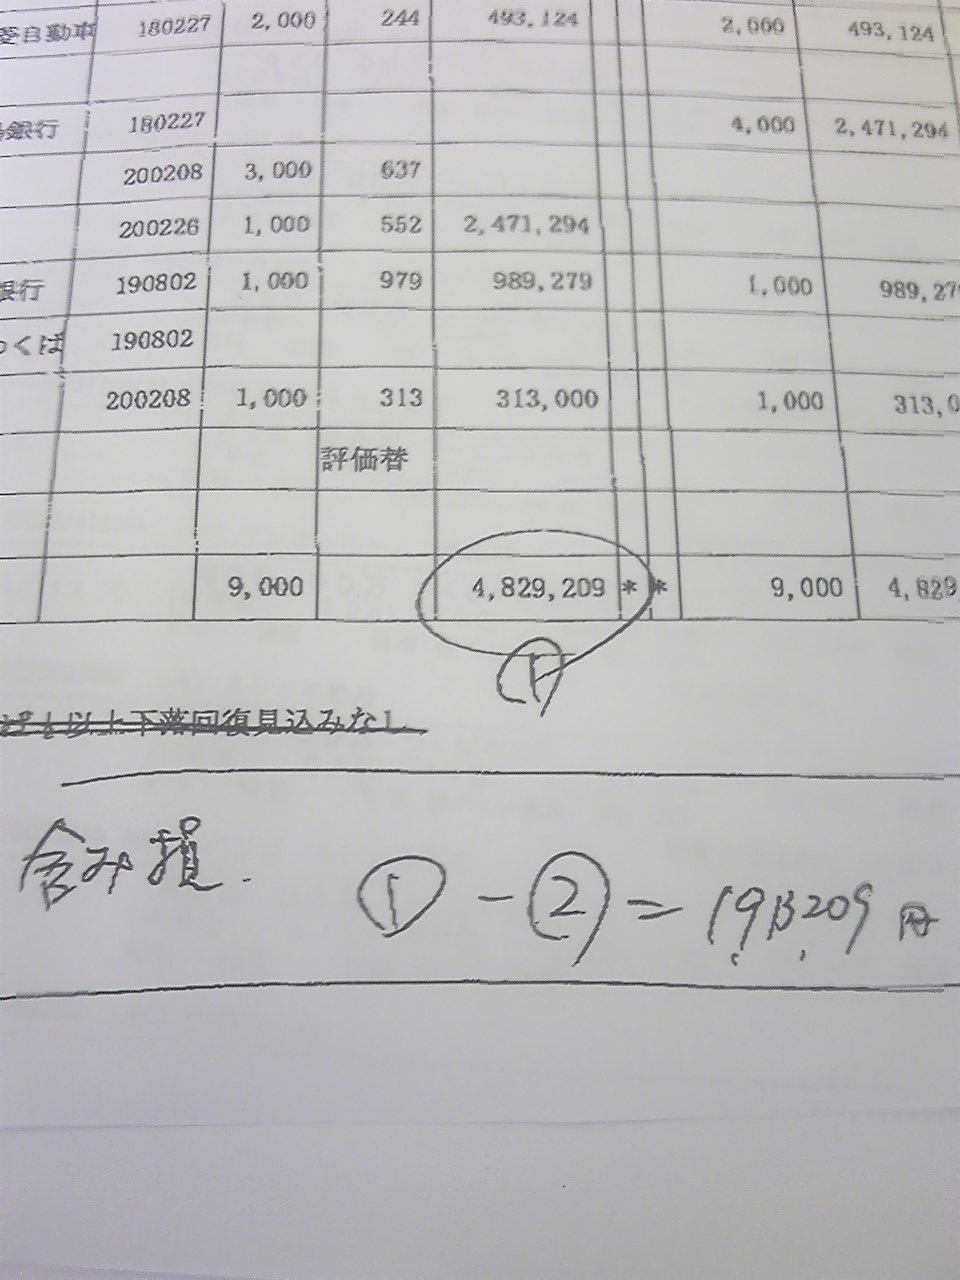 自動車 180227 2,000 244 493,124 2,000 493,124
銀行 180227 4,000 2,471,294
200208 3,000 637
200226 1,000 552 2,471,294
銀行 190802 1,000 979 989,279 1,000 989,27
くば 190802
200208 1,000 313 313,000 1,000 313,0
評価替
9,000 4,829,209 * * 9,000 4,829
①
以上下落回復見込みなし
含み損. ① - ② = 1,913,209 円